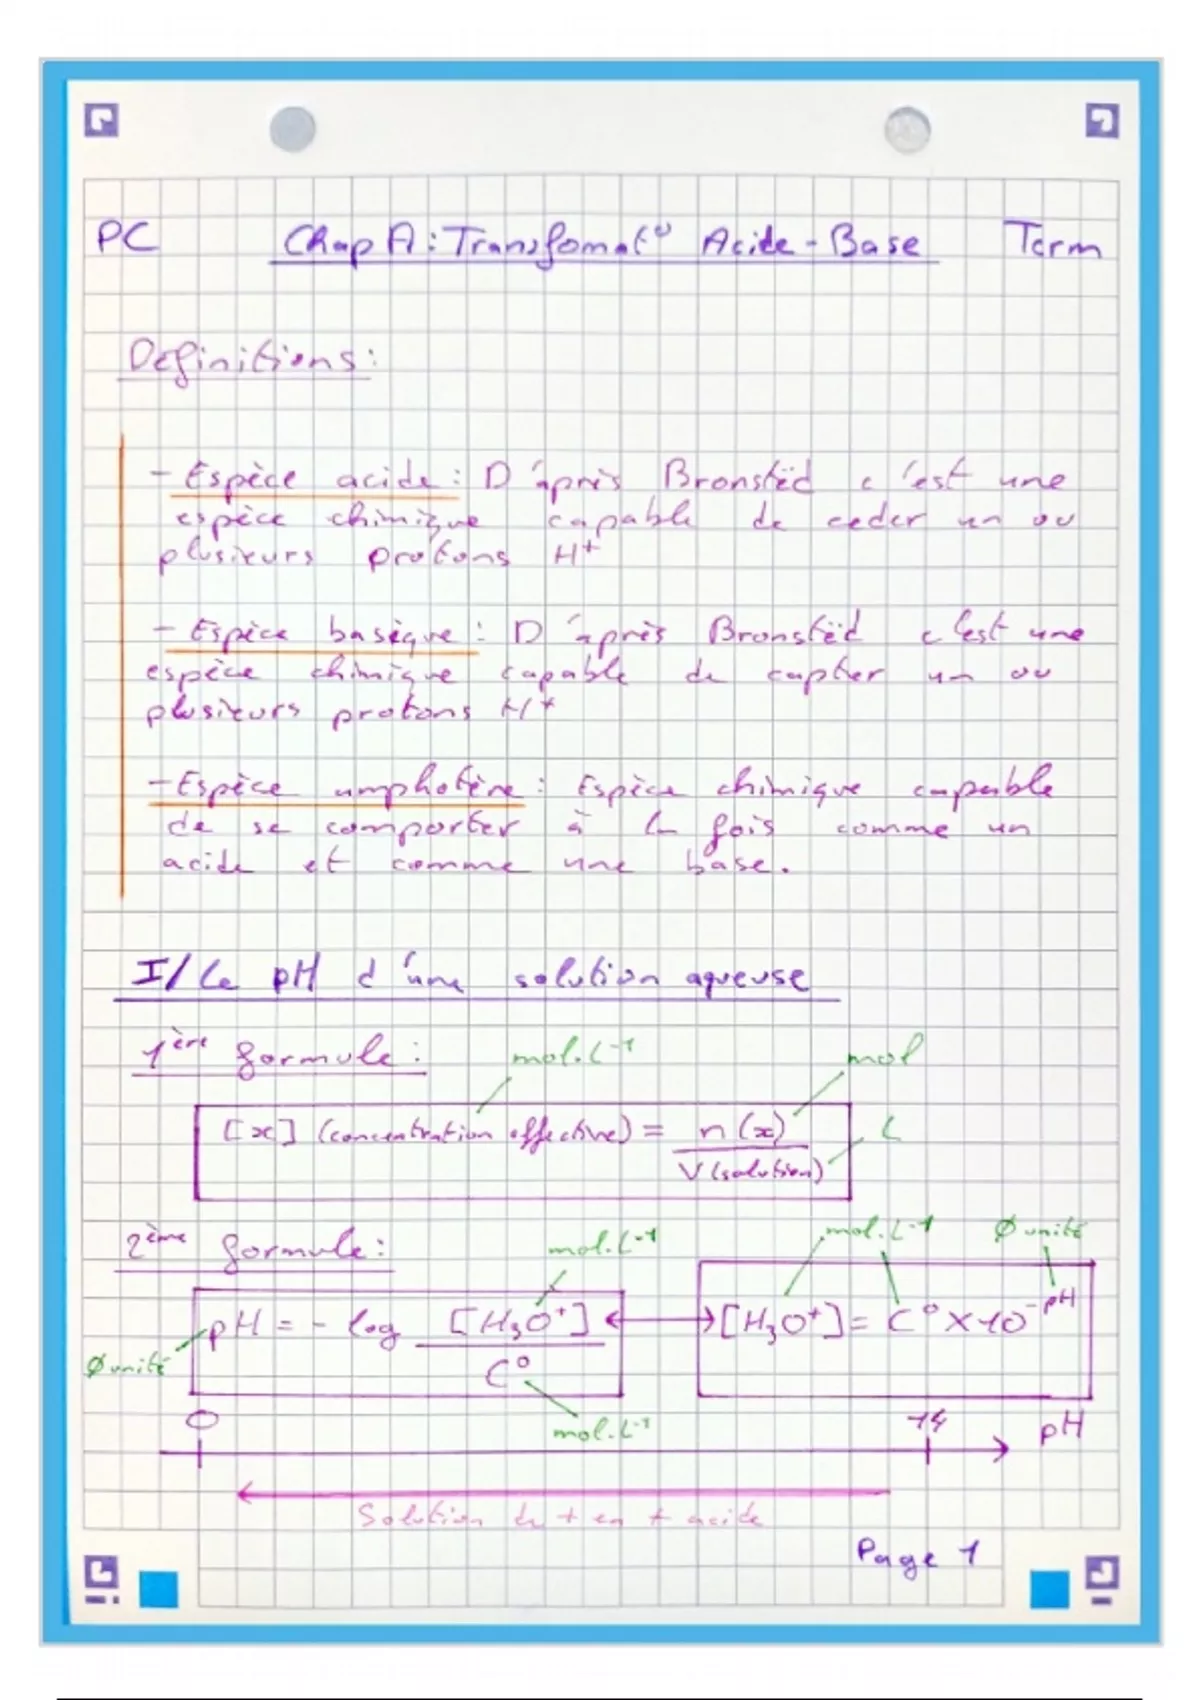 PC Chap A : Transfomat° Acide-Base Term
Définitions :
- Espèce acide : D'après Bronstëd c'est une
espèce chimique capable de ceder un ou
plusieurs protons H+
- Espèce basique : D'après Bronstëd c'est une
espèce chimique capable de capter un ou
plusieurs protons H+
- Espèce amphotère : Espèce chimique capable
de se comporter à la fois comme un
acide et comme une base.
I/ Le pH d'une solution aqueuse
1ère formule : mol.L-1 mol
[x] (concentration effective) = n(x) / V(solution) L
2ème formule : mol.L-1 mol.L-1 Ø unité
pH = - log [H3O+] / C° ↔ [H3O+] = C° × 10-pH
Ø unité
mol.L-1
0 14 pH
Solution de + en + acide
Page 1